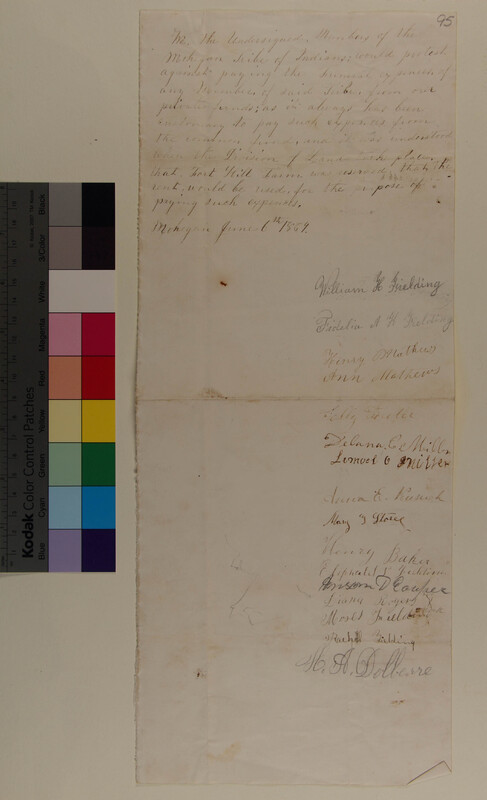 95
We, the Undersigned, Members of the
Mohegan tribe of Indians, would protest
against paying the funeral expenses of
any Members of said tribe, from our
private funds; as it always has been
customary to pay such expenses from
the common fund, and it was understood
when the Division of Land took place,
that Fort Hill farm was reserved, that the
rent, would be used, for the purpose of
paying such expenses.
Mohegan June 6th 1869.
William H Fielding
Fidelia A H Fielding
Henry Mathews
Ann Mathews
Delana C Miller
Lemuel O Miller
Mary I Storey
Henry Baker
Anson D Cooper
Moses Fielding
Fielding
H. A. Dolbeare
Kodak Color Control Patches
Blue
Cyan
Green
Yellow
Red
Magenta
White
3/Color
Black